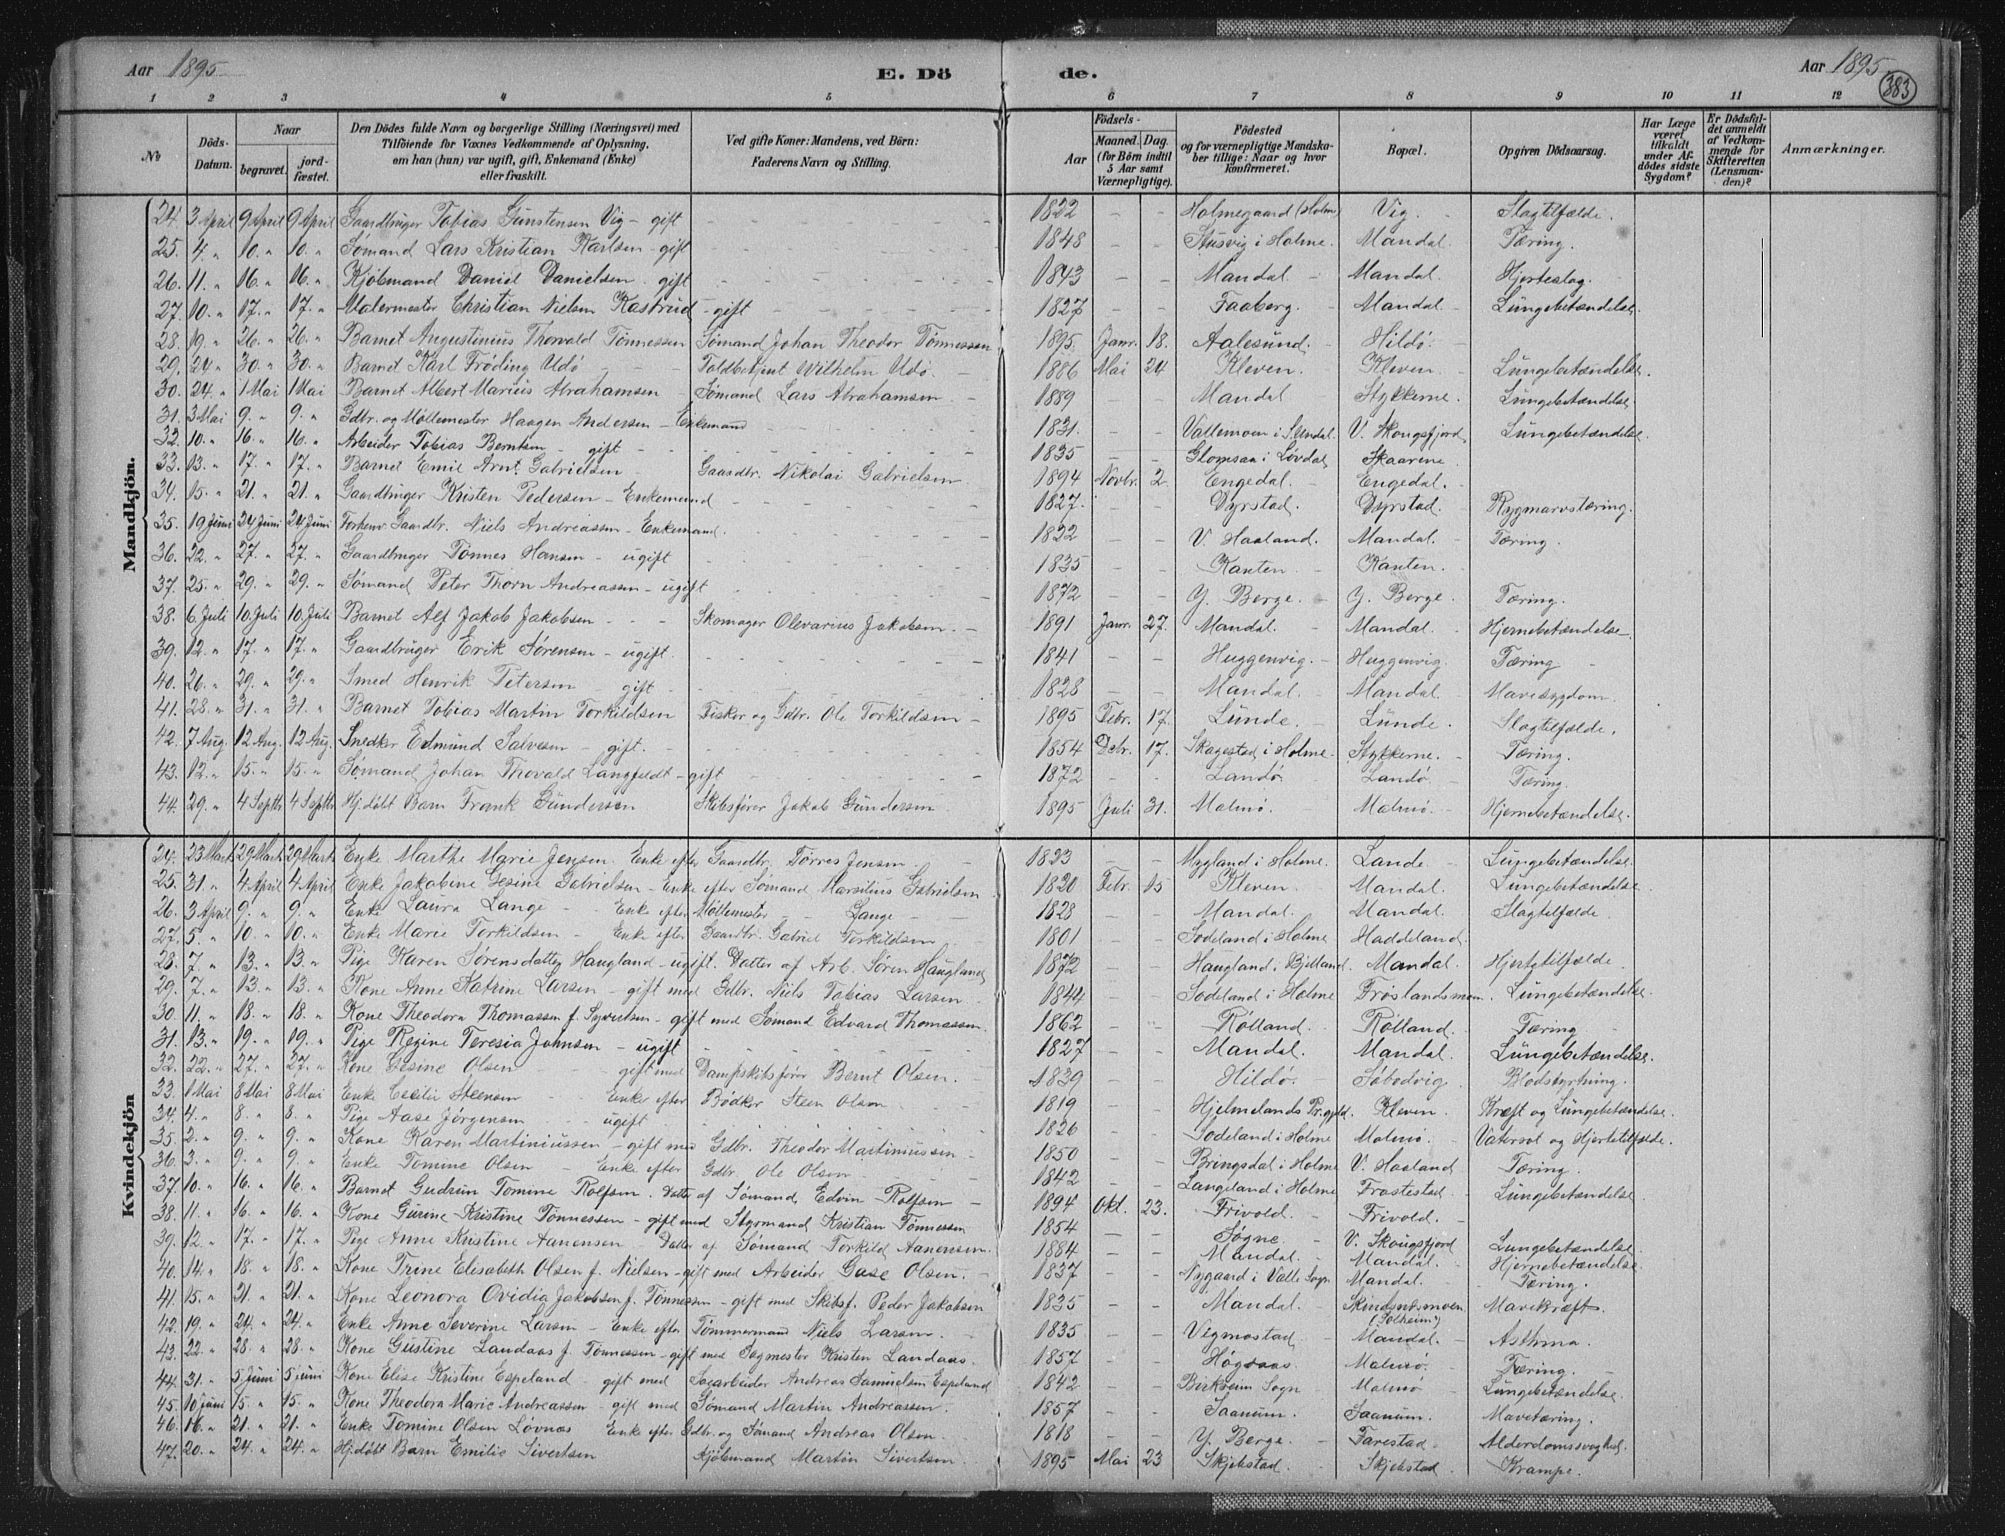 Aar 1895
E. Dö
de.
Aar 1895
383
1 2 3 4 5 6 7 8 9 10 11 12
No
Döds-Datum.
Naar begravet. jordfæstet.
Den Dödes fulde Navn og borgerlige Stilling (Næringsvei) med Tilföiende for Voxnes Vedkommende af Oplysning, om han (hun) var ugift, gift, Enkemand (Enke) eller fraskilt.
Ved gifte Koner: Mandens, ved Börn: Faderens Navn og Stilling.
Födsels-
Aar Maaned. Dag. (for Börn indtil 5 Aar samt Værnepligtige).
Födested og for værnepligtige Mandskaber tillige: Naar og hvor konfirmeret.
Bopæl.
Opgiven Dödsaarsag.
Har Læge været tilkaldt under Afdödes sidste Sygdom?
Er Dödsfaldet anmeldt af Vedkommende for Skifteretten (Lensmanden)?
Anmærkninger.
Mandkjön.
24. 3 April 9 April 9 April Gaardbruger Tobias Gunstensen Vig - gift 1822 Holmegaard (Holme) Vig. Slagtilfælde.
25. 4. " 10. " 10. " Sømand Lars Kristian Karlsen - gift 1848 Stusvig i Holme. Mandal. Tæring.
26. 11. " 16. " 16. " Kjøbmand Daniel Danielsen gift 1843 Mandal Mandal. Hjerteslag.
27. 10. " 17. " 17. " Malermester Christian Nielsen Kastrud - gift 1827 Faaberg. Mandal. Lungebetændelse.
28. 19. " 26. " 26. " Barnet Augustinius Thorvald Tønnessen Sømand Johan Theodor Tønnessen 1895. Janr. 18. Aalesund. Hildø.
29. 24. " 30. " 30. " Barnet Karl Frøding Udø Toldbetjent Wilhelm Udø. 1886 Mai 24 Kleven. Kleven. Lungebetændelse.
30. 24. " 1 Mai 1 Mai Barnet Albert Marius Abrahamsen Sømand Lars Abrahamsen 1889 Mandal Stykkerne. Lungebetændelse
31. 3 Mai 9. " 9. " Gdbr. og Møllemester Haagen Andersen - Enkemand 1831. Vallemoen i S. Undal. V. Skougsfjord. Lungebetændelse.
32. 10. " 16. " 16. " Arbeider Tobias Berntsen - gift 1835 Glomsaa i Løvdal Skaarene.
33. 13. " 17. " 17. " Barnet Emil Arnt Gabrielsen Gaardbr. Nikolai Gabrielsen 1894 Novbr. 2 Engedal. Engedal.
34. 15. " 21. " 21. " Gaardbruger Kristen Pedersen - Enkemand 1827. Dyrstad. Dyrstad. Rygmarvstæring.
35. 19 Juni 24 Juni 24 Juni Forhenv. Gaardbr. Niels Andreassen - Enkemand. 1822 V. Haaland. Mandal. Tæring.
36. 22. " 27. " 27. " Gaardbruger Tønnes Hansen - ugift 1835 Kanten. Kanten.
37. 25. " 29. " 29. " Sømand Peter Thorn Andreassen - ugift 1872 Y. Berge. Y. Berge. Tæring.
38. 6 Juli 10 Juli 10 Juli Barnet Alf Jakob Jakobsen Skomager Olevarius Jakobsen. 1891 Janr. 27. Mandal. Mandal. Hjernebetændelse
39. 12. " 17. " 17. " Gaardbruger Erik Sørensen - ugift. 1841 Huggenvig. Huggenvig. Tæring
40. 26. " 29. " 29. " Smed Henrik Petersen gift 1828 Mandal. Mandal. Mavesygdom
41. 28. " 31. " 31. " Barnet Tobias Martin Torkildsen Fisker og Gdbr. Ole Torkildsen 1895 Febr. 17. Lunde. Lunde. Slagtilfælde.
42. 7 Aug. 12 Aug. 12 Aug. Snedker Edmund Salvesen - gift. 1854 Debr. 17. Skagestad i Holme. Stykkerne. Tæring.
43. 12. " 15. " 15. " Sømand Johan Thovald Langfeldt - gift 1872 Landø. Landø. Tæring.
44. 29. " 4 Septb 4 Septb Hjdøbt Barn Frank Gundersen Skibsfører Jakob Gundersen 1895 Juli 31. Malmø. Malmø. Hjernebetændelse.
Kvindekjön
24. 23 Marts 29 Marts 29 Marts Enke Marthe Marie Jensen. Enke efter Gaardbr. Tørres Jensen. 1823 Mygland i Holme. Lande. Lungebetændelse.
25. 31. " 4 April 4 April Enke Jakobine Gesine Gabrielsen - Enke efter Sømand Marsilius Gabrielsen 1820 Febr. 15 Kleven. Mandal. Lungebetændelse.
26. 3 April 9. " 9. " Enke Laura Lange Enke efter Møllemester Lange 1828 Mandal. Mandal. Slagtilfælde.
27. 5. " 10. " 10. " Enke Marie Torkildsen - Enke efter Gaardbr. Gabriel Torkildsen 1801 Sodeland i Holme Haddeland.
28. 7. " 13. " 13. " Pige Karen Sørensdatter Haugland - ugift. Datter af Arb. Søren Haugland 1872 Haugland i Bjelland. Mandal. Hjertetilfælde.
29. 7. " 13. " 13. " Kone Anne Katrine Larsen - gift med Gdbr. Niels Tobias Larsen. 1844 Sodeland i Holme Frøslandsmoen. Lungebetændelse.
30. 11. " 18. " 18. " Kone Theodora Thomassen f. Syvertsen - gift med Sømand Edvard Thomassen. 1862 Rølland. Rølland. Tæring
31. 13. " 19. " 19. " Pige Regine Teresia Johnsen - ugift 1827 Mandal. Mandal. Lungebetændelse.
32. 22. " 27. " 27. " Kone Gesine Olsen gift med Dampskibsfører Bernt Olsen. 1839 Hildø. Søbodvig. Blodstyrtning.
33. 1 Mai 8 Mai 8 Mai Enke Cecilie Steensen Enke efter Bødker Steen Olsen 1819 Hjelmelands Pr.gjeld. Kleven. Kræft og Lungebetændelse.
34. 4. " 8. " 8. " Pige Aase Jørgensen ugift 1826 Sodeland i Holme Malmø. Vatersot og Hjertetilfælde.
35. 2. " 9. " 9. " Kone Karen Martiniussen - gift med Gdbr. Theodor Martiniussen 1850 Bringsdal i Holme V. Haaland Tæring.
36. 3. " 9. " 9. " Enke Tomine Olsen Enke efter Gdbr. Ole Olsen 1842 Langeland i Holme Frøstestad. Lungebetændelse
37. 10. " 16. " 16. " Barnet Gudrun Tomine Rolfsen. Datter af Sømand Edvin Rolfsen 1894 Okt. 23. Frivold. Frivold.
38. 11. " 16. " 16. " Kone Gurine Kristine Tønnessen - gift med Styrmand Kristian Tønnessen 1854 Søgne. V. Skougsfjord Lungebetændelse.
39. 12. " 17. " 17. " Pige Anne Kristine Aanensen Datter af Sømand Torkild Aanensen. 1884 Mandal. Mandal. Hjernebetændelse
40. 14. " 18. " 18. " Kone Trine Elisabeth Olsen f. Nielsen - gift med Arbeider Gase Olsen. 1837 Nygaard i Valle Sogn Mandal. Tæring.
41. 15. " 21. " 21. " Kone Leonora Ovidia Jakobsen f. Tønnessen - gift med Skibsf. Peder Jakobsen 1835 Mandal. Skindsnæsmoen (Solheim) Mavekræft.
42. 19. " 24. " 24. " Enke Anne Severine Larsen - Enke efter Tømmermand Niels Larsen. 1835 Vigmostad. Mandal. Asthma.
43. 22. " 28. " 28. " Kone Gustine Landaas f. Tønnessen - gift med Sagmester Kristen Landaas. 1857 Høgsaas. Malmø. Tæring.
44. 31. " 5 Juni 5 Juni Kone Elise Kristine Espeland - gift med Andreas Samuelsen Espeland 1842 Birkreim Sogn Malmø Lungebetændelse.
45. 10 Juni 15. " 15. " Kone Theodora Marie Andreassen - gift med Sømand Martin Andreassen. 1857 Saanum. Saanum. Mavetæring.
46. 16. " 21. " 21. " Enke Tomine Olsen Løvnæs Enke efter Gdbr. og Sømand Andreas Olsen 1818 Y. Berge. Farestad. Alderdomssvaghed.
47. 20. " 24. " 24. " Hjdøbt Barn Emilie Sivertsen Kjøbmand Martin Sivertsen. 1895 Mai 23 Skjebstad. Skjebstad Krampe.